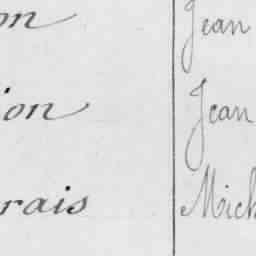 on Jean
ion Jean
rais Mich